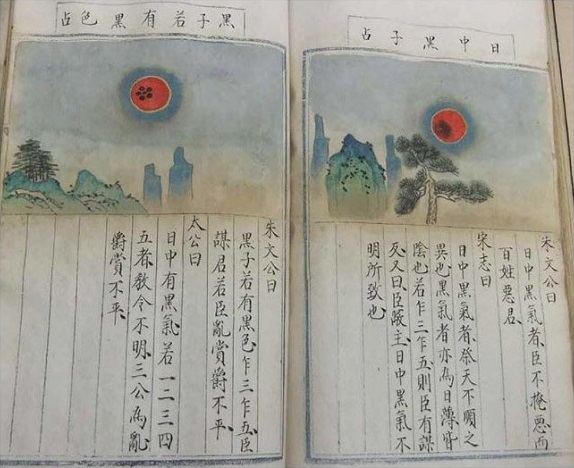 日中黑子占
朱文公曰
日中黑氣者臣不掩惡而
百姓惡君
宋志曰
日中黑氣者祭天不順之
異也黑氣者亦為日薄
陰也若乍三乍五則臣有謀
死又曰臣蔽主日中黑氣不
明所致也
黑子若有黑色占
朱文公曰
黑子若有黑色乍三乍五臣
謀君若臣亂賞爵不平
太公曰
日中有黑氣若一二三四
五者教令不明三公為亂
爵賞不平